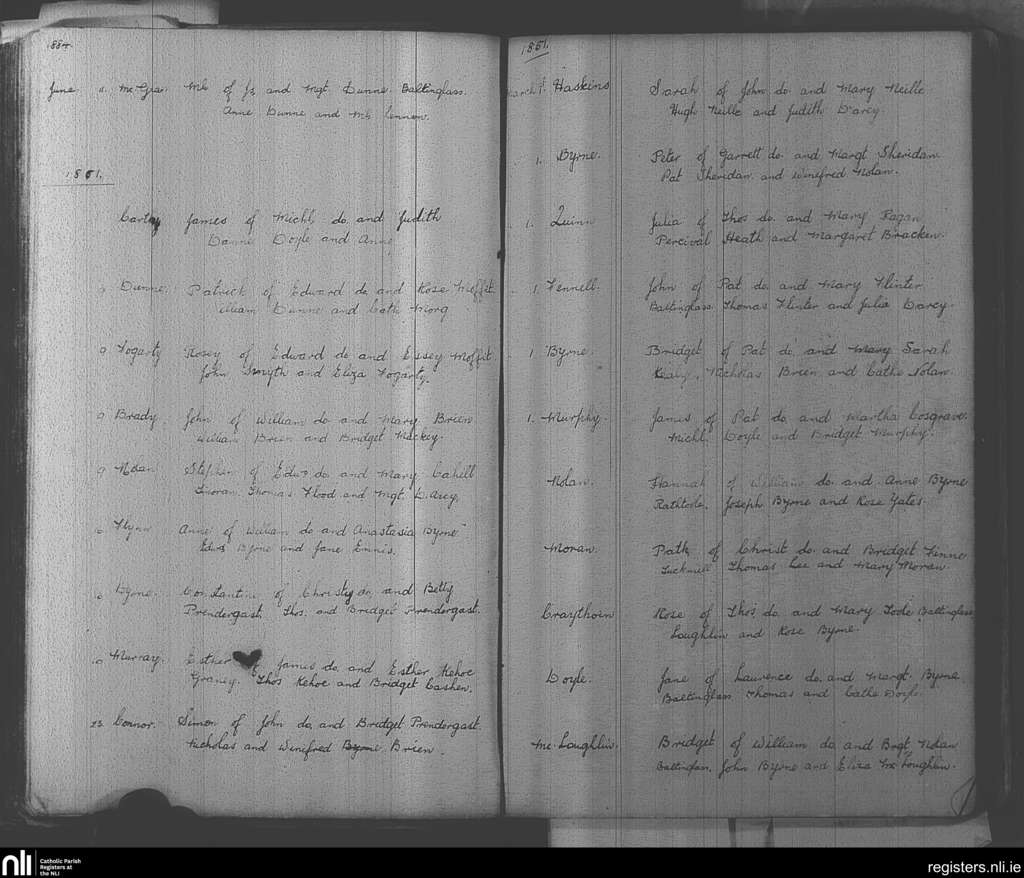 1884.
June. Mc Gra. Mk of Js and Mgt. Dunne. Baltinglass.
Anne Dunne and Mk Lennon.
1851.
Carty James of Michl. do. and Judith
Doyle and Anne
9 Dunne. Patrick of Edward do and Rose Moffit.
William Dunne and Cath
9 Fogarty Rosey of Edward do and Essey Moffit.
John Smyth and Eliza Fogarty.
9 Brady. John of William do and Mary Brien.
William Brien and Bridget Mackey.
9 Nolan Stephen of Edwd do. and Mary Cahill
Thomas Flood and Mgt. Darcy.
Flynn Anne of William do and Anastasia Byrne
Edwd Byrne and Jane Ennis.
Byrne. Constantine of Christy do. and Betty
Prendergast. Thos. and Bridget Prendergast.
Murray. Esther of James do. and Esther Kehoe
Graney. Thos Kehoe and Bridget Cashen.
23 Connor. Simon of John do. and Bridget Prendergast.
Nicholas and Winefred Byrne Brien.
1851.
March 1. Haskins Sarah of John do. and Mary Neille
Hugh Neille and Judith Darcy.
1. Byrne. Peter of Garrett do. and Margt Sheridan
Pat Sheridan. and Winefred Nolan.
1. Quinn Julia of Thos do. and Mary Ragan
Percival Heath and Margaret Bracken.
1. Fennell. John of Pat do. and Mary Flinter
Baltinglass. Thomas Flinter and Julia Darcy.
1 Byrne. Bridget of Pat do. and Mary Sarah
Nicholas Brien and Cathe Nolan.
1. Murphy. James of Pat do. and Martha Cosgrave.
Michl. Doyle and Bridget Murphy.
Nolan. Hannah of William do. and Anne Byrne
Rathtoole. Joseph Byrne and Rose Yates.
Moran. Patk of Christ do. and Bridget Finne
Tuckmill Thomas Lee and Mary Moran.
Craythorn Rose of Thos do. and Mary Toole. Baltinglass
Loughlin and Rose Byrne.
Doyle. Jane of Laurence do. and Margt. Byrne
Baltinglass Thomas and Cathe Doyle.
Mc Loughlin. Bridget of William do. and Brgt. Nolan
Baltinglass. John Byrne and Eliza Mc Loughlin.
nli Catholic Parish
Registers at
the NLI
registers.nli.ie